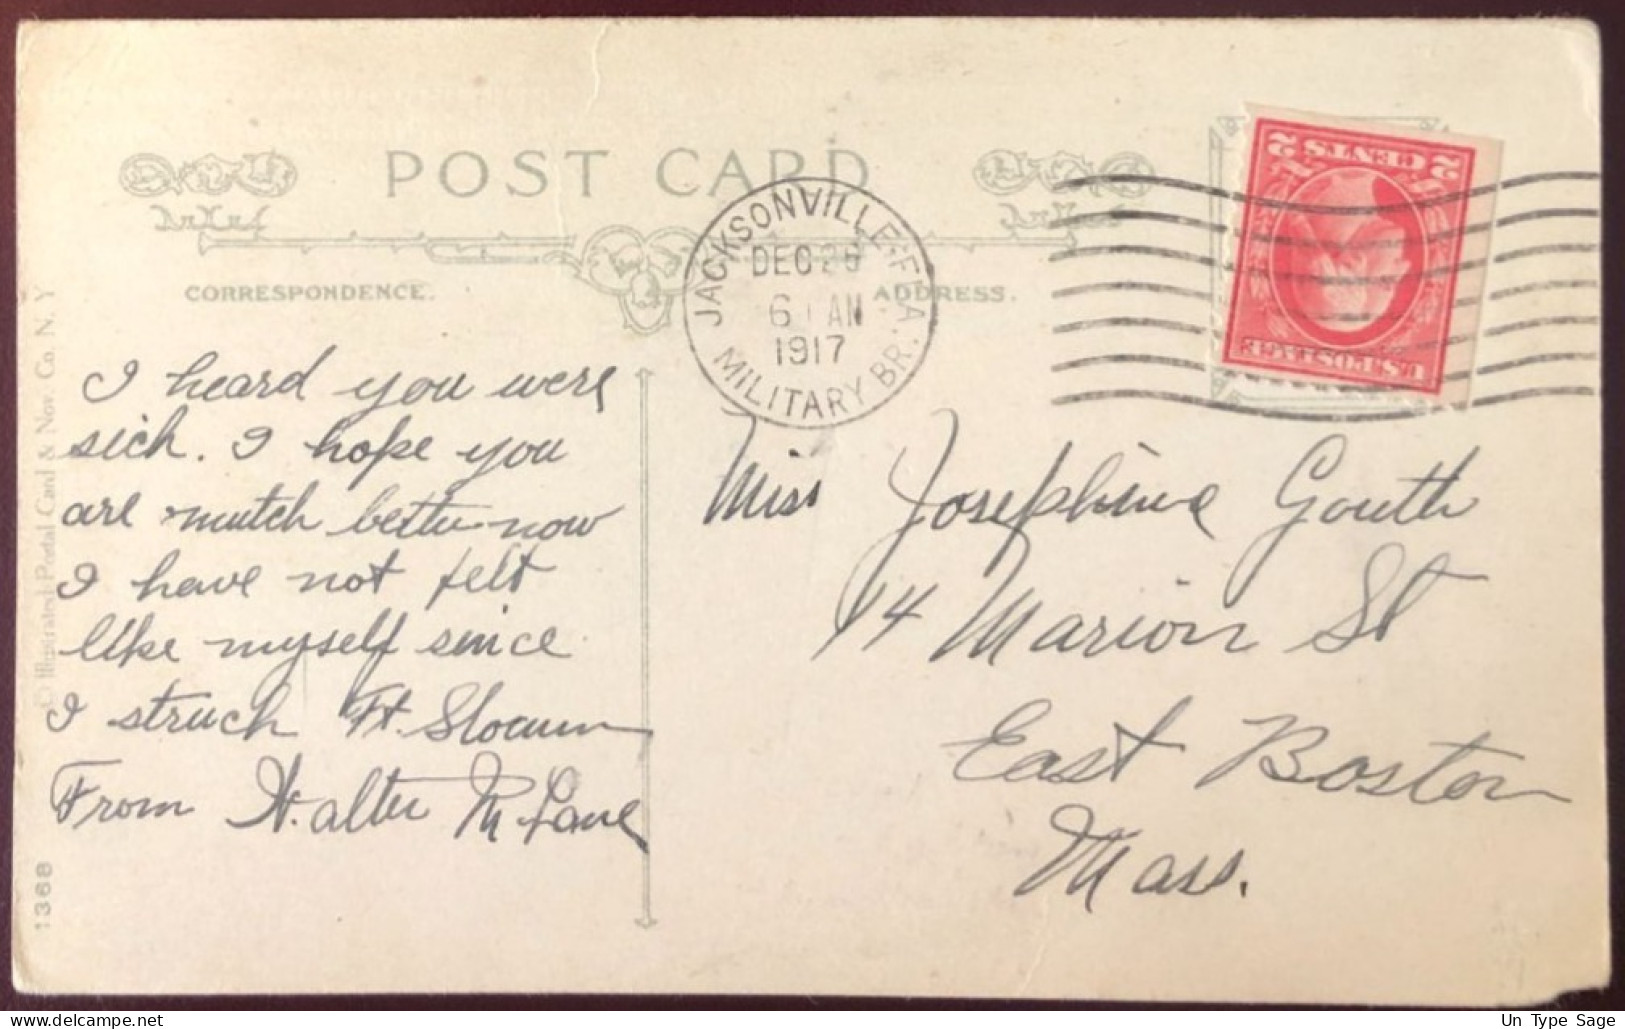 POST CARD
CORRESPONDENCE.
ADDRESS.
JACKSONVILLE, FLA.
DEC
6 AM
1917
MILITARY BR.
2 CENTS 2
U.S. POSTAGE
I heard you were
sick. I hope you
are mutch better now
I have not felt
like myself since
I struck Ft. Slocum
From Walter McLane
Miss Josephine Gouth
14 Marion St
East Boston
Mass.
© Illustrated Postal Card & Nov. Co. N.Y
1368
Un Type Sage